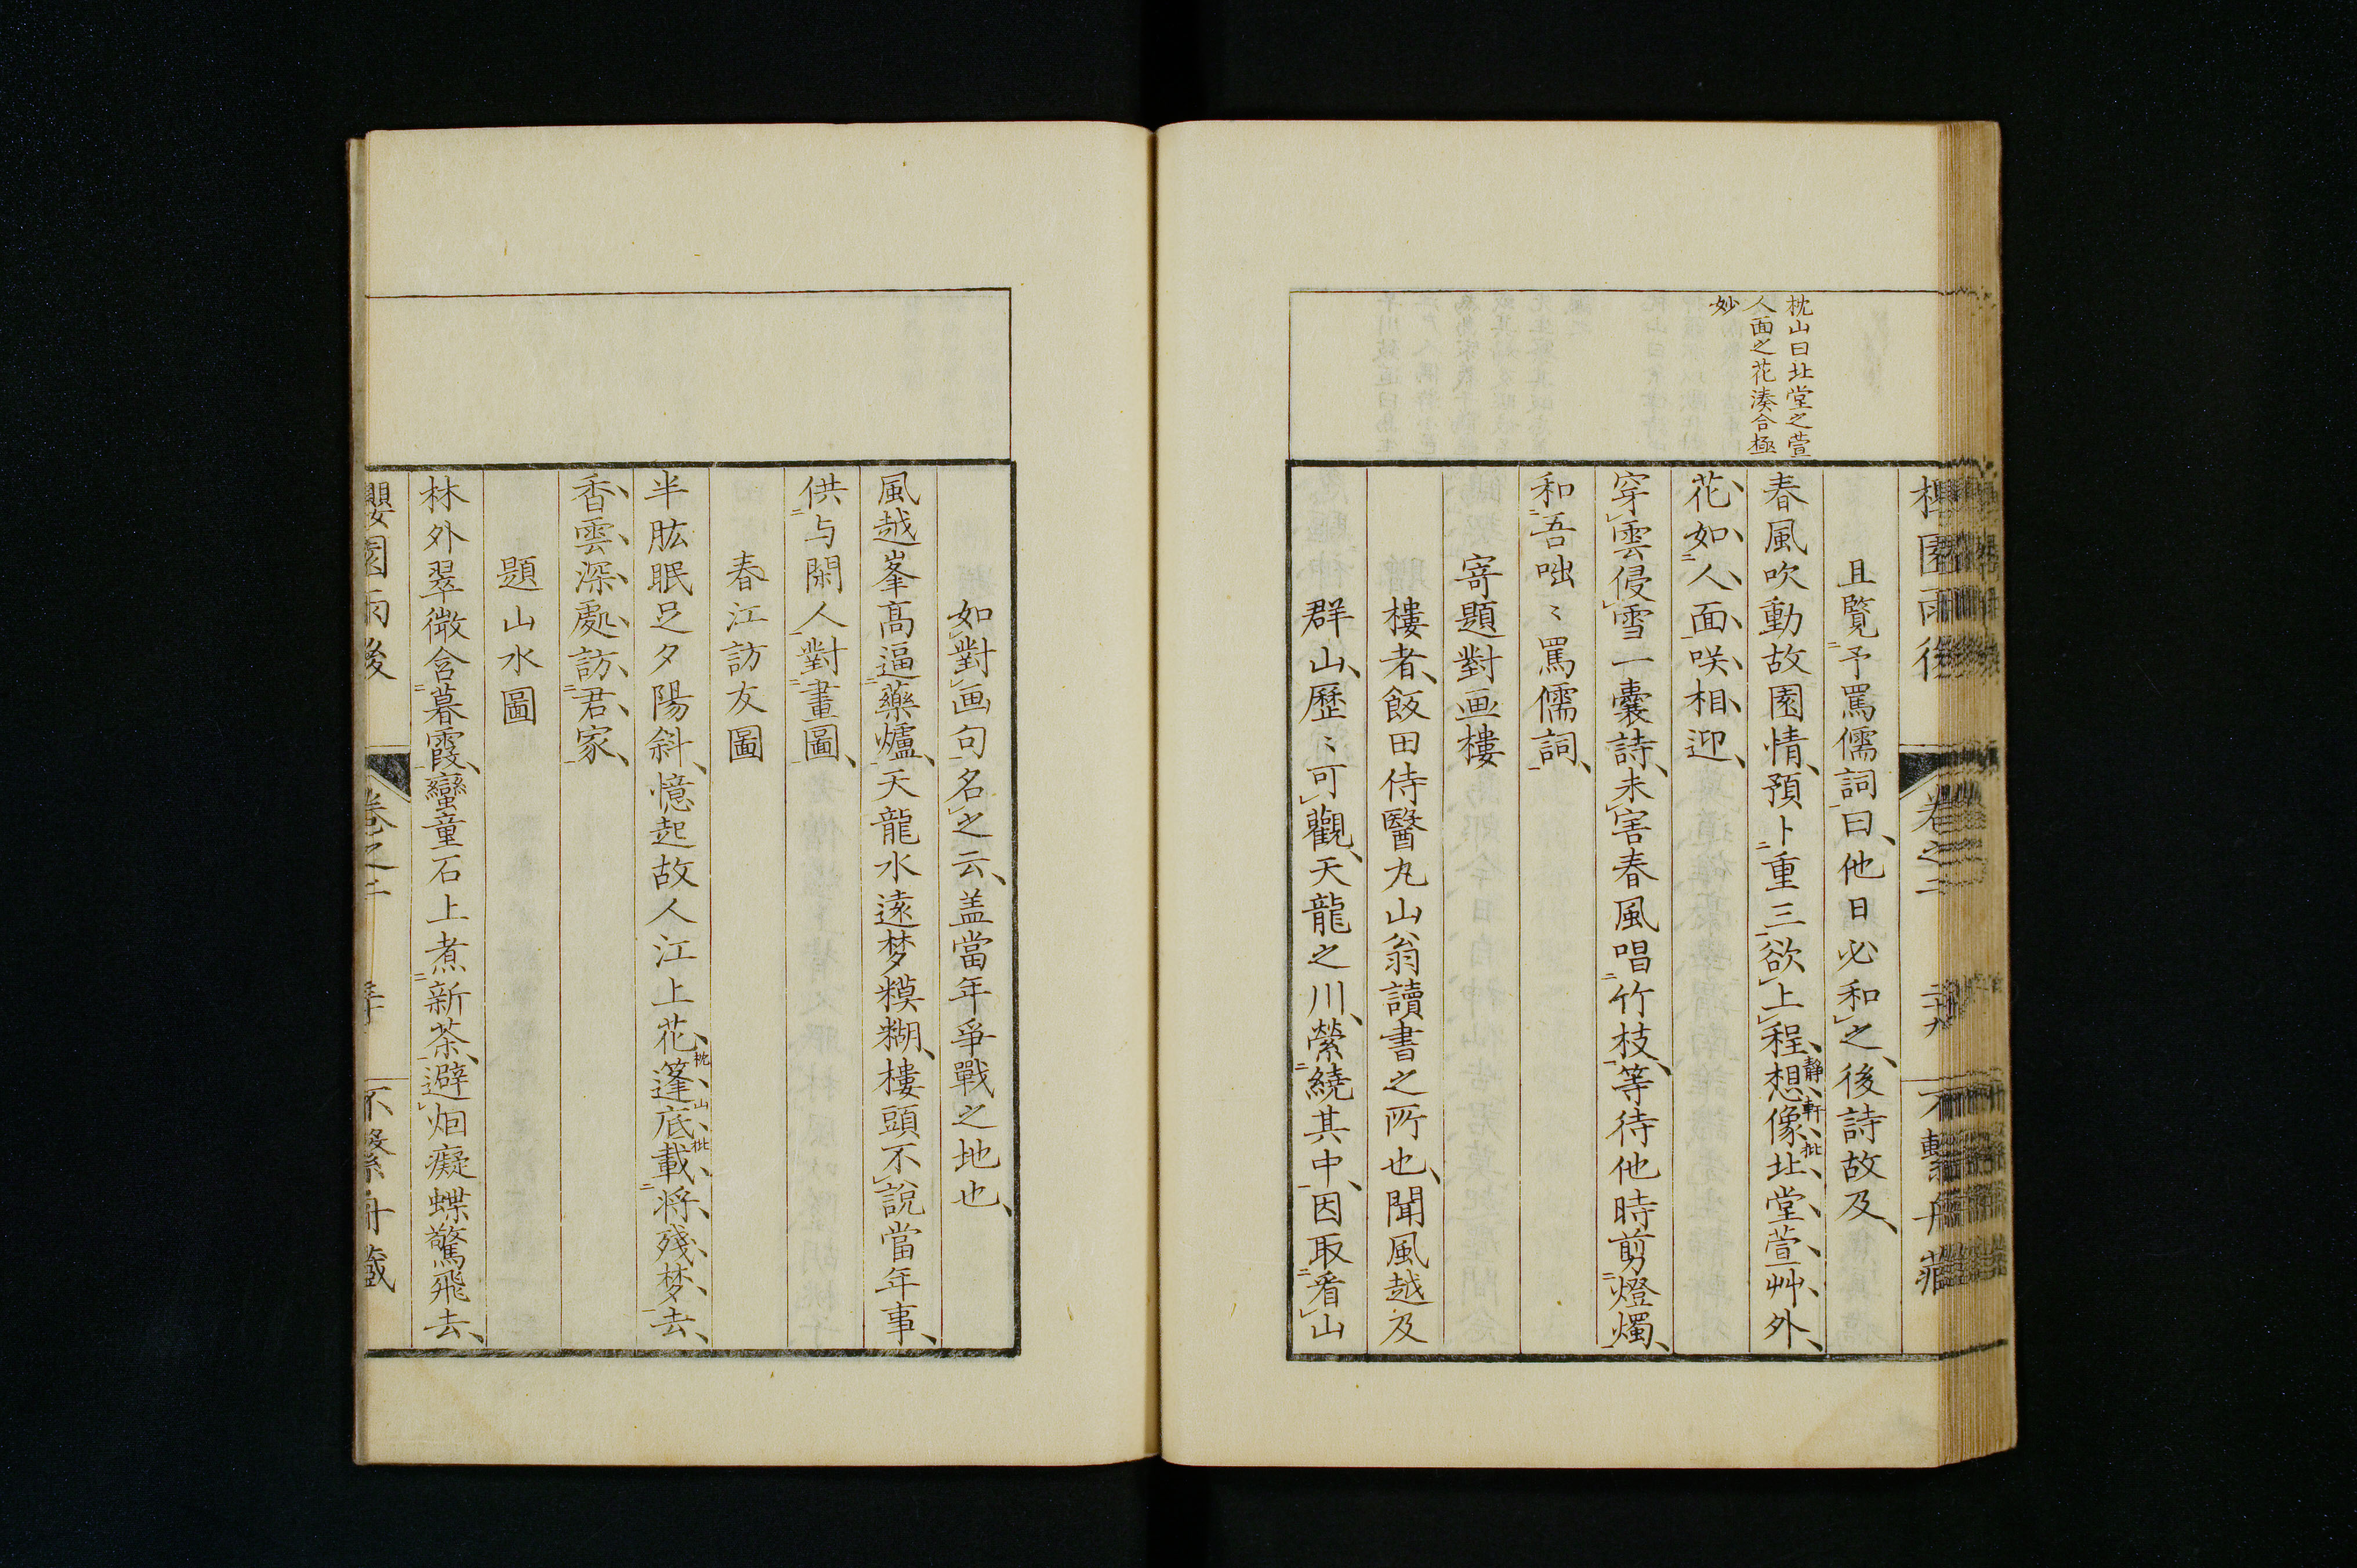 枕山曰北堂之萱
人面之花湊合極
妙
櫻園雨後 卷之二 二十九 不繫舟藏
且覽予罵儒詞曰、他日必和之、後詩故及、
春風吹動故園情、預卜重三欲上程、想像北堂萱艸外、
靜軒批
花如人面咲相迎、
穿雲侵雪一囊詩、未害春風唱竹枝、等待他時剪燈燭、
和吾咄〻罵儒詞、
寄題對画樓
樓者、飯田侍醫丸山翁讀書之所也、聞風越及
群山、歷〻可觀、天龍之川、縈繞其中、因取看山
如對画句名之云、盖當年爭戰之地也、
風越峯高逼藥爐、天龍水遠梦糢糊、樓頭不說當年事、
供与閑人對畫圖、
春江訪友圖
半肱眠足夕陽斜、憶起故人江上花、篷底載將殘梦去、
枕山批
香雲深處訪君家、
題山水圖
林外翠微含暮霞、蠻童石上煮新茶、避烟癡蝶驚飛去、
櫻園雨後 卷之二 不繫舟藏